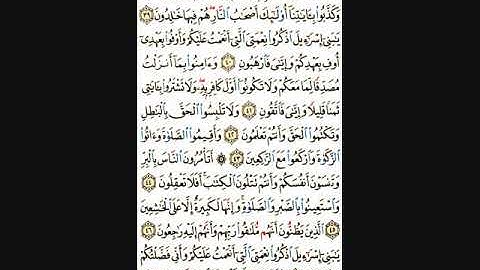 وَكَذَّبُوا۟ بِـَٔايَـٰتِنَآ أُو۟لَـٰٓئِكَ أَصْحَـٰبُ ٱلنَّارِ ۖ هُمْ فِيهَا خَـٰلِدُونَ ٣٩
يَـٰبَنِىٓ إِسْرَٰٓءِيلَ ٱذْكُرُوا۟ نِعْمَتِىَ ٱلَّتِىٓ أَنْعَمْتُ عَلَيْكُمْ وَأَوْفُوا۟ بِعَهْدِىٓ
أُوفِ بِعَهْدِكُمْ وَإِيَّـٰىَ فَٱرْهَبُونِ ٤٠ وَءَامِنُوا۟ بِمَآ أَنزَلْتُ
مُصَدِّقًا لِّمَا مَعَكُمْ وَلَا تَكُونُوٓا۟ أَوَّلَ كَافِرٍۭ بِهِۦ ۖ وَلَا تَشْتَرُوا۟ بِـَٔايَـٰتِى
ثَمَنًا قَلِيلًا وَإِيَّـٰىَ فَٱتَّقُونِ ٤١ وَلَا تَلْبِسُوا۟ ٱلْحَقَّ بِٱلْبَـٰطِلِ
وَتَكْتُمُوا۟ ٱلْحَقَّ وَأَنتُمْ تَعْلَمُونَ ٤٢ وَأَقِيمُوا۟ ٱلصَّلَوٰةَ وَءَاتُوا۟
ٱلزَّكَوٰةَ وَٱرْكَعُوا۟ مَعَ ٱلرَّٰكِعِينَ ٤٣ ۞ أَتَأْمُرُونَ ٱلنَّاسَ بِٱلْبِرِّ
وَتَنسَوْنَ أَنفُسَكُمْ وَأَنتُمْ تَتْلُونَ ٱلْكِتَـٰبَ ۚ أَفَلَا تَعْقِلُونَ ٤٤
وَٱسْتَعِينُوا۟ بِٱلصَّبْرِ وَٱلصَّلَوٰةِ ۚ وَإِنَّهَا لَكَبِيرَةٌ إِلَّا عَلَى ٱلْخَـٰشِعِينَ
٤٥ ٱلَّذِينَ يَظُنُّونَ أَنَّهُم مُّلَـٰقُوا۟ رَبِّهِمْ وَأَنَّهُمْ إِلَيْهِ رَٰجِعُونَ ٤٦
يَـٰبَنِىٓ إِسْرَٰٓءِيلَ ٱذْكُرُوا۟ نِعْمَتِىَ ٱلَّتِىٓ أَنْعَمْتُ عَلَيْكُمْ وَأَنِّى فَضَّلْتُكُمْ